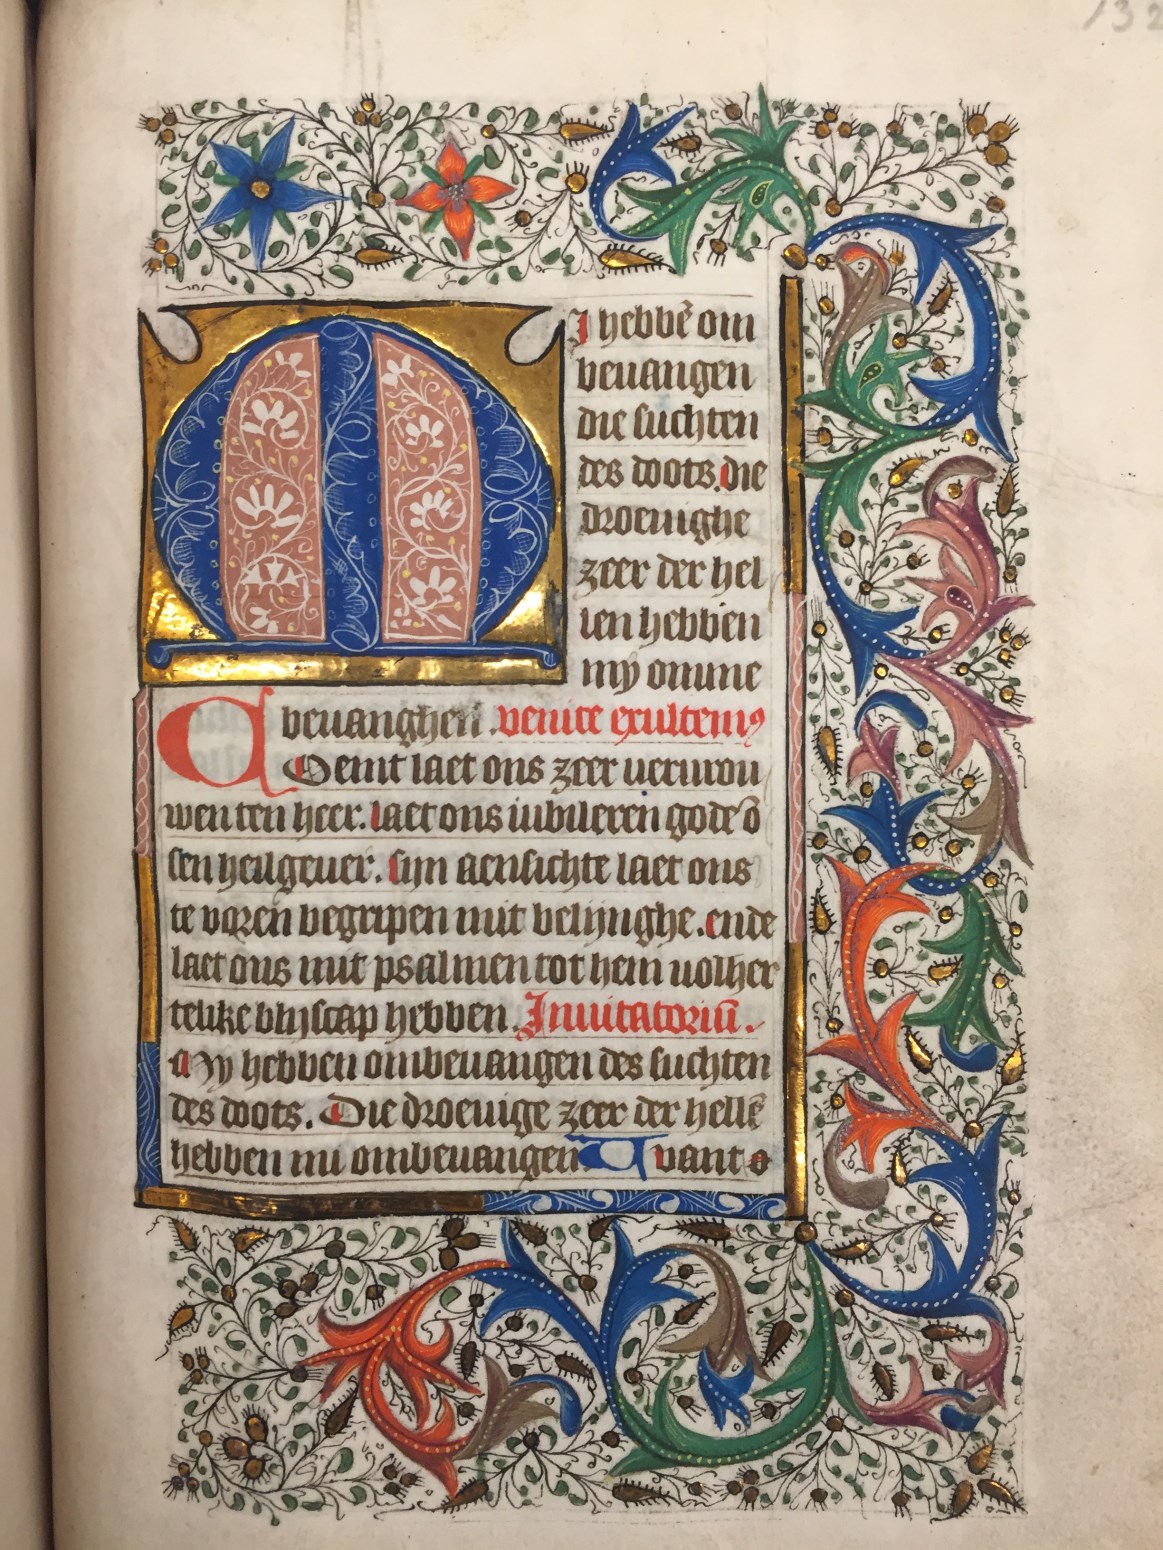 132
MI hebbē om
beuangen
die suchten
des doots. die
droeuighe
zeer der hel
len hebben
my omme
beuanghen. venite exultemus
Coemt laet ons zeer vervrou
wen ten heer. laet ons iubileren gode ō
sen heilgeuer. sijn aensichte laet ons
te voren begripen mit belijnghe. ende
laet ons mit psalmen tot hem volher
telike blijscap hebben. Inuitatoriū.
My hebben ombeuangen des suchten
des doots. Die droeuige zeer der hellē
hebben mi ombeuangen. Want o